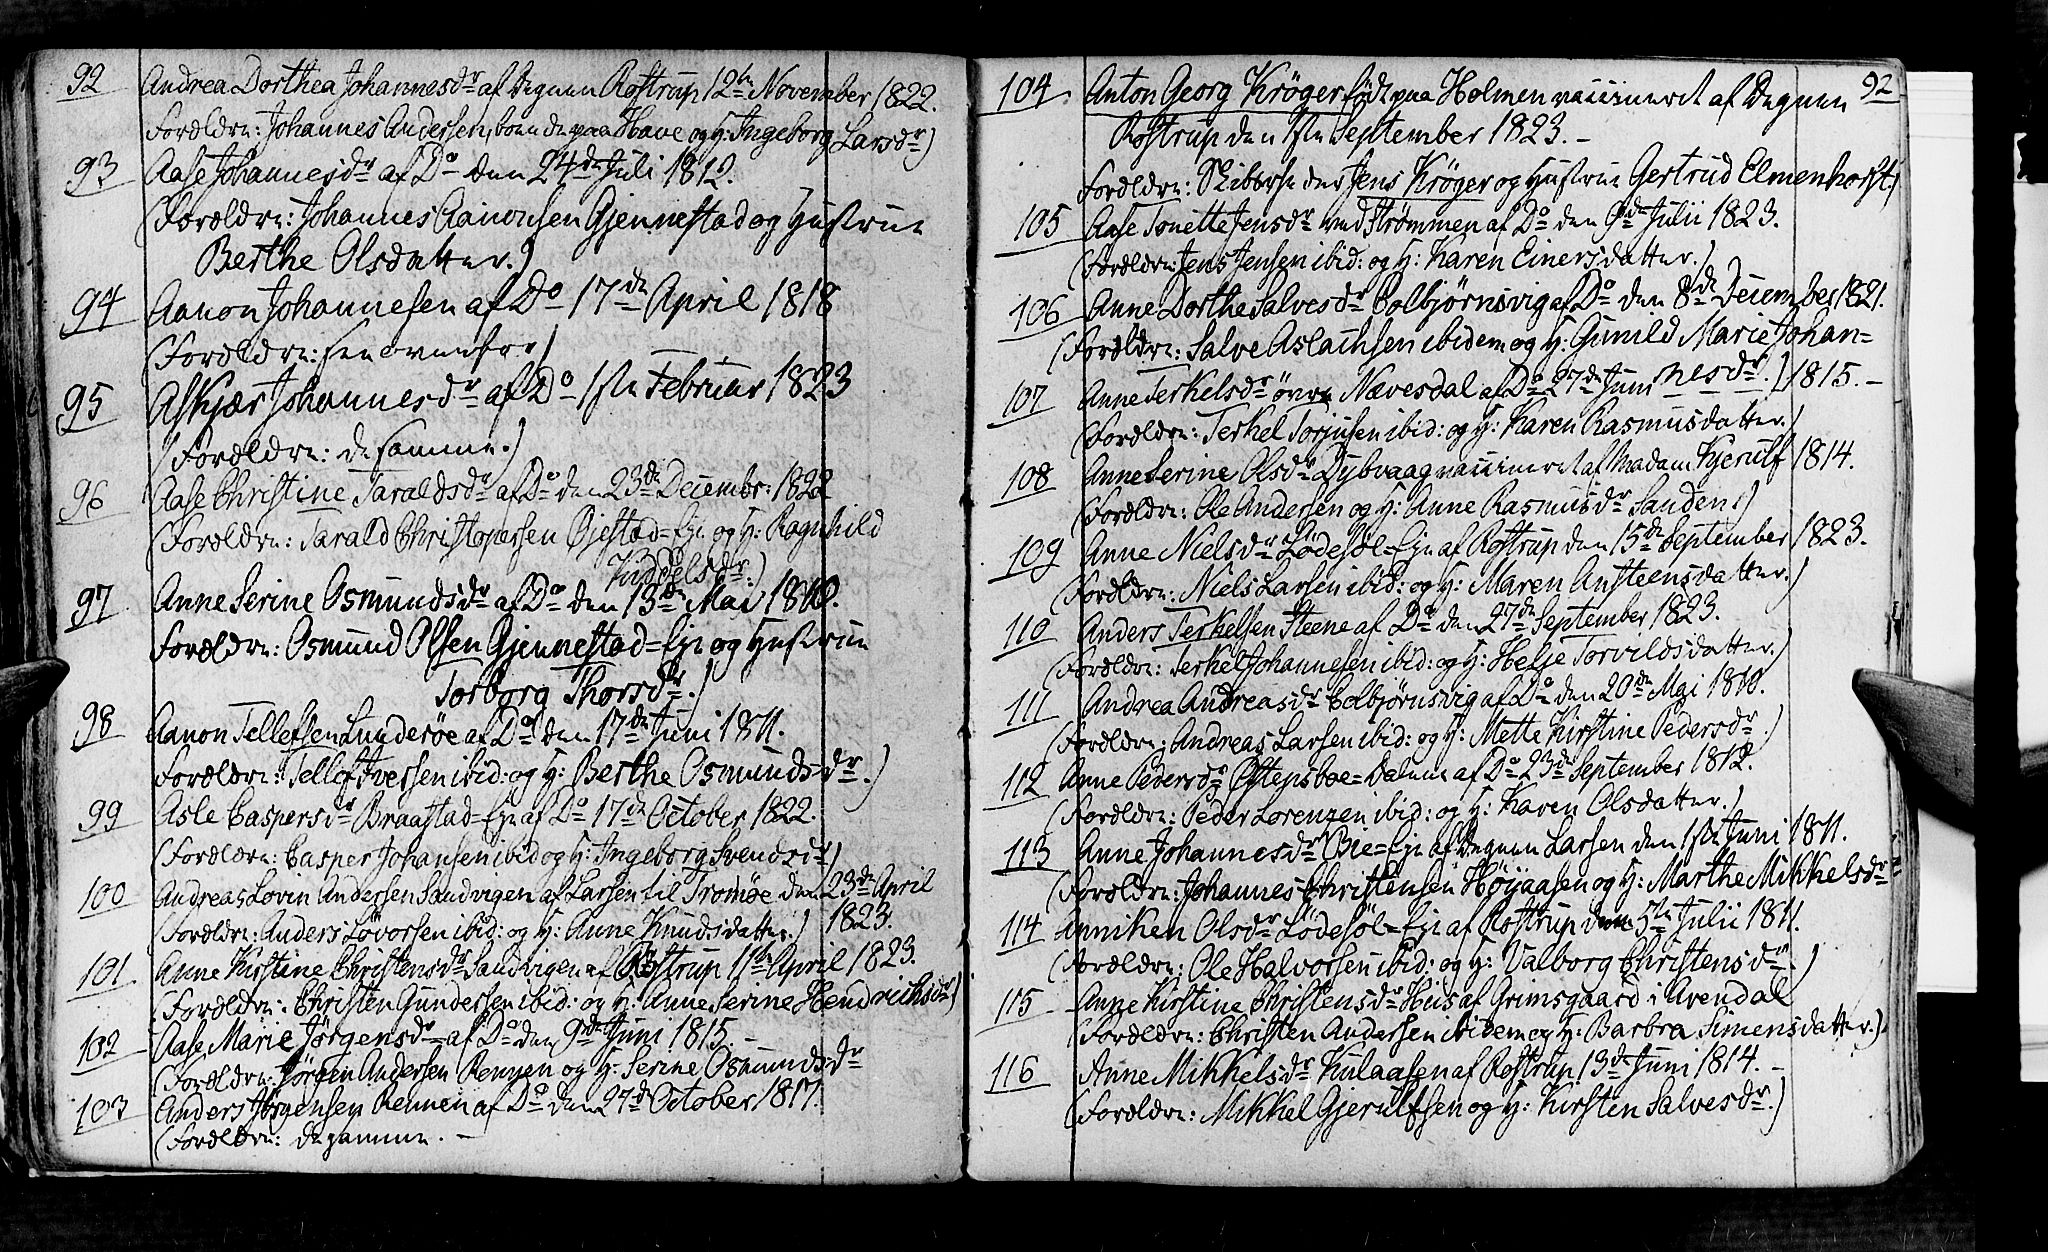 92 Andrea Dorthea Johannesdr af Degnen Rostrup 12te November 1822.
Forældre: Johannes Andersen, boende paa Have og H: Ingeborg Larsdr)
93 Aase Johannesdr af Do den 24de Juli 1812.
(Forældre: Johannes Aanonsen Gjennestad og Hustrue
Berthe Olsdatter.)
94 Aanon Johannesen af Do 17de April 1818
(Forældre: see ovenfor)
95 Askjær Johannesdr af Do 1ste Februar 1823
(Forældre: de samme.)
96 Aase Christine Taraldsdr af Do den 23de Decembr: 1822
(Forældre: Tarald Christophersen Øjestad=Eje og H: Ragnhild
Kiddelsdr.)
97 Anne Serine Osmundsdr af Do den 13de Mai 1810.
Forældre: Osmund Olsen Gjennestad=Eje og Hustrue
Torborg Thorsdr.)
98 Aanon Tellefsen Lunderøe af Do den 17de Juni 1811.
Forældre: Tellef Iversen ibid: og H: Berthe Osmundsdr.)
99 Asle Caspersdr Braastad=Eje af Do 17de October 1822.
(Forældre: Casper Johansen ibid og H: Ingeborg Svendsdr)
100 Andreas Lovin Andersen Sandvigen af Larsen til Tromøe den 23de April
(Forældre: Anders Løvorsen ibid: og H: Anne Knudsdatter.) 1823.
101 Anne Kirstine Christensdr Sandvigen af Rostrup 11te April 1823.
(Forældre: Christen Gundersen ibid: og H: Anne Serine Hendrichsdr)
102 Aase Marie Jørgensdr af Do den 9de Juni 1815. -
(Forældre: Jørgen Andersen Rennen og H: Serine Osmundsdr
103 Anders Jørgensen Rennen af Do den 24de October 1817.
(Forældre: de samme. -
92
104 Anton Georg Krøger født paa Holmen vaccineret af Degnen
Rostrup den 1ste September 1823. -
Forældre: Skibbersk der Jens Krøger og Hustrue Gertrud Elmenhorst)
105 Aase Tonette Jensdr ved Strømmen af Do den 9de Julii 1823.
(Forældre: Jens Jensen ibid: og H: Karen Einersdatter.)
106 Anne Dorthe Salvesdr Colbjørnsvig af Do den 8de December 1821.
(Forældre: Salve Aslachsen ibidem og H: Gunild Marie Johan=
nesdr.)
107 Anne Terkelsdr øvre Nævesdal af Do 27de Juni 1815. -
(Forældre: Terkel Torjusen ibid: og H: Karen Rasmusdatter.)
108 Anne Serine Olsdr Dybvaag vaccineret af Madam Kjerulf 1814.
(Forældre: Ole Andersen og H: Anne Rasmusdr Sanden.)
109 Anne Nielsdr Lødesøl=Eje af Rostrup den 15de September 1823.
(Forældre: Niels Larsen ibid: og H: Maren Ansteensdatter.)
110 Anders Terkelsen Steene af Do den 27de September 1823.
(Forældre: Terkel Johannesen ibid: og H: Helje Torvildsdatter.)
111 Andrea Andreasdr Colbjørnsvig af Do den 20de Mai 1810.
(Forældre: Andreas Larsen ibid: og H: Mette Kirstine Pedersdr.)
112 Anne Pedersdr Østensboe=Dalene af Do 23de September 1812.
(Forældre: Peder Lorenzen ibid: og H: Karen Olsdatter.)
113 Anne Johannesdr Bie=Eje af Degnen Larsen den 1ste Juni 1811.
(Forældre: Johannes Christensen Højaasen og H: Marthe Mikkelsdr
114 Anniken Olsdr Lødesøl=Eje af Rostrup den 5te Julii 1811.
(Forældre: Ole Halvorsen ibid: og H: Valborg Christensdr.)
115 Anne Kirstine Christensdr Heis af Grimsgaard i Arendal
(Forældre: Christen Andersen ibidem og H: Barbra Simensdatter.)
116 Anne Mikkelsdr Kulaasen af Rostrup 13de Juni 1814. -
(Forældre: Mikkel Gjerulfsen og H: Kirsten Salvesdr.)